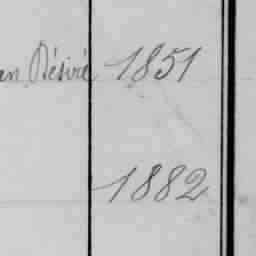 an Désiré 1851
1882